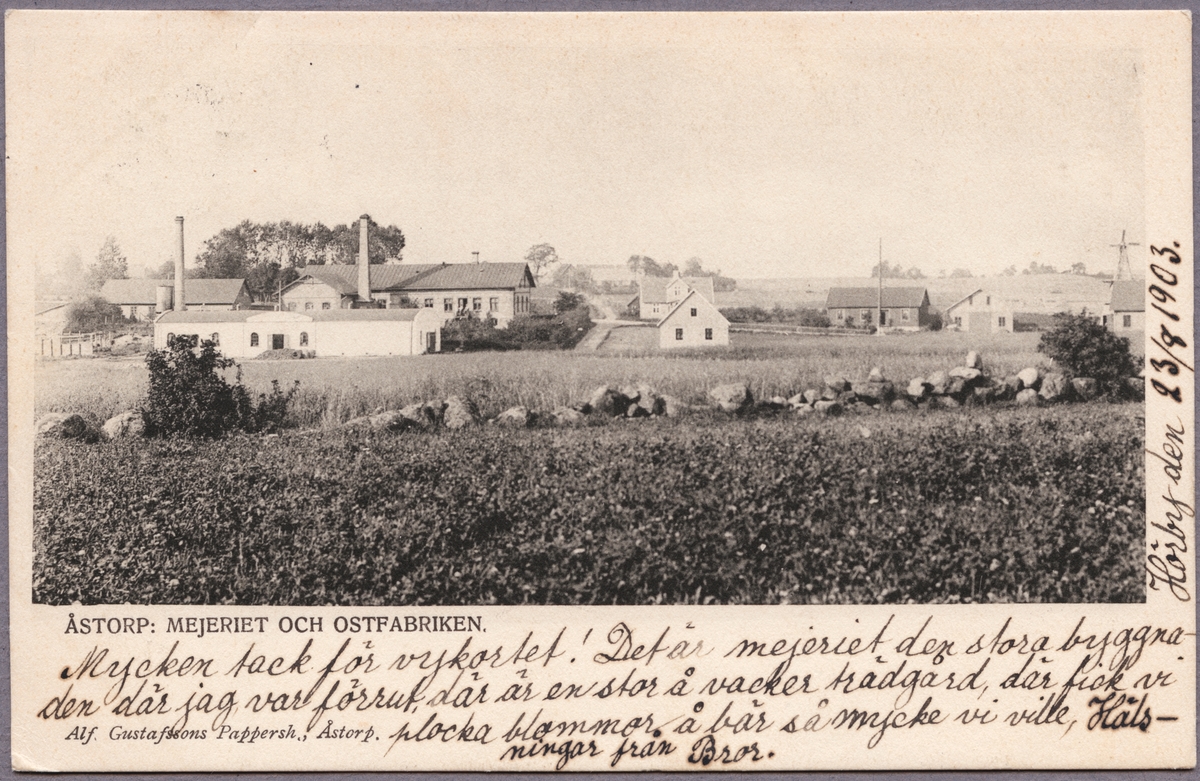 Hörby den 23/8 1903.
ÅSTORP: MEJERIET OCH OSTFABRIKEN.
Mycken tack för vykortet! Det är mejeriet den stora byggna-
den där jag var förrut, där är en stor å vacker trädgård, där fick vi
plocka blommor å bär så mycke vi ville, Häls-
ningar från Bror.
Alf. Gustafssons Pappersh., Åstorp.